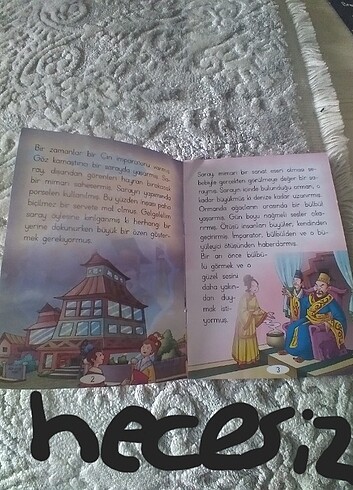 Bir zamanlar bir Çin imparatoru varmış.
Göz kamaştırıcı bir sarayda yaşarmış. Sa-
ray, dışarıdan görenleri hayran bırakacak
bir mimari şahesermiş. Sarayın yapımında
porselen kullanılmış. Bu yüzden insan paha
biçilmez bir servete mal olmuş. Gelgelelim
saray öylesine kırılganmış ki herhangi bir
yerine dokunurken büyük bir özen göster-
mek gerekiyormuş.
2
Saray, mimari bir sanat eseri olması se-
bebiyle gerçekten görülmeye değer bir sa-
raymış. Sarayın içinde bulunduğu orman, o
kadar büyükmüş ki denize kadar uzanırmış.
Ormanda ağaçların arasında bir bülbül
yaşarmış. Gün boyu nağmeli sesler çıka-
rırmış. Ötüşü insanları büyüler, kendinden
geçirirmiş. İmparator, bülbülden ve o bü-
yüleyici ötüşünden haberdarmış.
Bir an önce bülbü-
lü görmek ve o
güzel sesini
daha yakın-
dan duy-
mak isti-
yormuş.
3
hecesiz